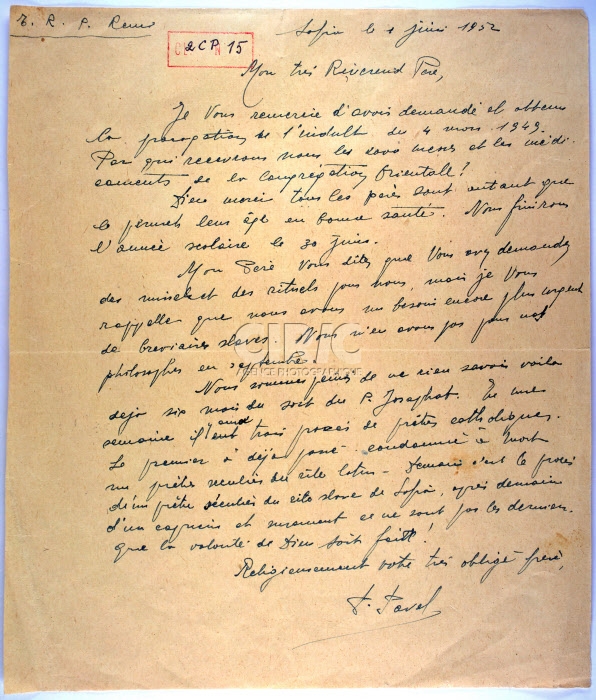 T. R. P. Remi
Sofia le 1 juin 1952
2 CP 15
Mon très Révérend Père,
Je Vous remercie d'avoir demandé et obtenu
la prorogation de l'indult du 4 mars 1949.
Par qui recevrons nous les 2000 messes et les médi-
caments de la Congrégation Orientale?
Dieu merci tous les pères sont autant que
le permet leur âge en bonne santé. Nous finirons
l'année scolaire le 30 juin.
Mon Père Vous dites que Vous avez demandez
des missel et des rituels pour nous, mais je Vous
rappelle que nous avons un besoin encore plus urgent
de breviaires slaves. Nous n'en avons pas pour nos
philosophes en septembre.
CIRIC
AGENCE PHOTOGRAPHIQUE
Nous sommes peinés de ne rien savoir voila
deja six mois du sort du P. Josaphat. En une
semaine il y aura eut trois procés de prêtres catholiques.
Le premier a déja passé - condamné à mort
un prêtre séculier du rite latin - Demain c'est le procés
d'un prêtre séculier du rite slave de Sofia, après demain
d'un capucin et surement ce ne sont pas les derniers.
Que la volonté de Dieu soit faite!
Religieusement votre très obligé frère,
P. Pavel